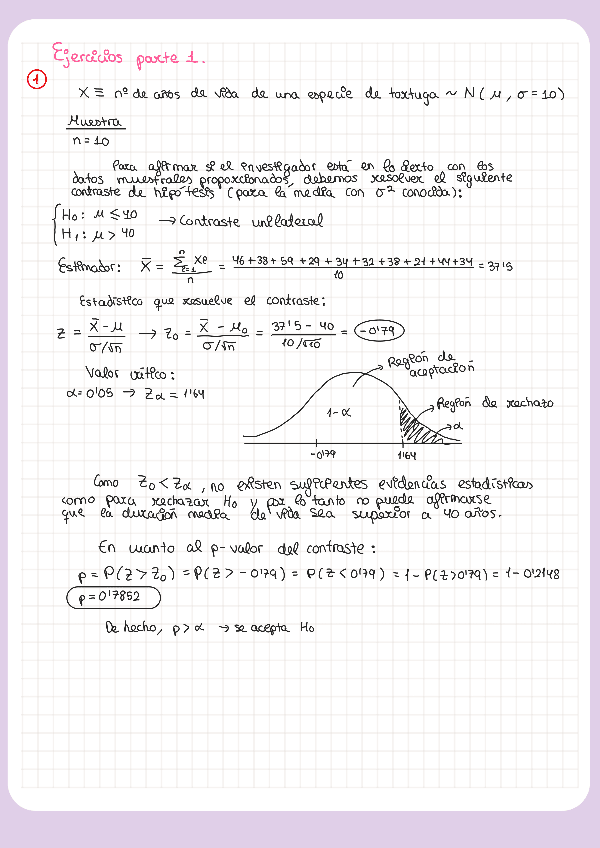 Ejercicios parte 1.
1
X ≡ nº de años de vida de una especie de tortuga ~ N( μ , σ = 10)
Muestra
n = 10
Para afirmar si el investigador está en lo cierto con los
datos muestrales proporcionados, debemos resolver el siguiente
contraste de hipótesis (para la media con σ² conocida):
{ H₀: μ ≤ 40
H₁: μ > 40 → Contraste unilateral
Estimador: X̄ = Σ(i=1, n) xi / n = (46 + 38 + 59 + 29 + 34 + 32 + 38 + 21 + 44 + 34) / 10 = 37'5
Estadístico que resuelve el contraste:
Z = (X̄ - μ) / (σ/√n) → Z₀ = (X̄ - μ₀) / (σ/√n) = (37'5 - 40) / (10/√10) = -0'79
Valor crítico:
α = 0'05 → Zα = 1'64
Región de
aceptación
Región de rechazo
1-α
α
-0'79 1'64
Como Z₀ < Zα , no existen suficientes evidencias estadísticas
como para rechazar H₀ y por lo tanto no puede afirmarse
que la duración media de vida sea superior a 40 años.
En cuanto al p-valor del contraste :
p = P(Z > Z₀) = P(Z > -0'79) = P(Z < 0'79) = 1 - P(Z > 0'79) = 1 - 0'2148
p = 0'7852
De hecho, p > α → se acepta H₀